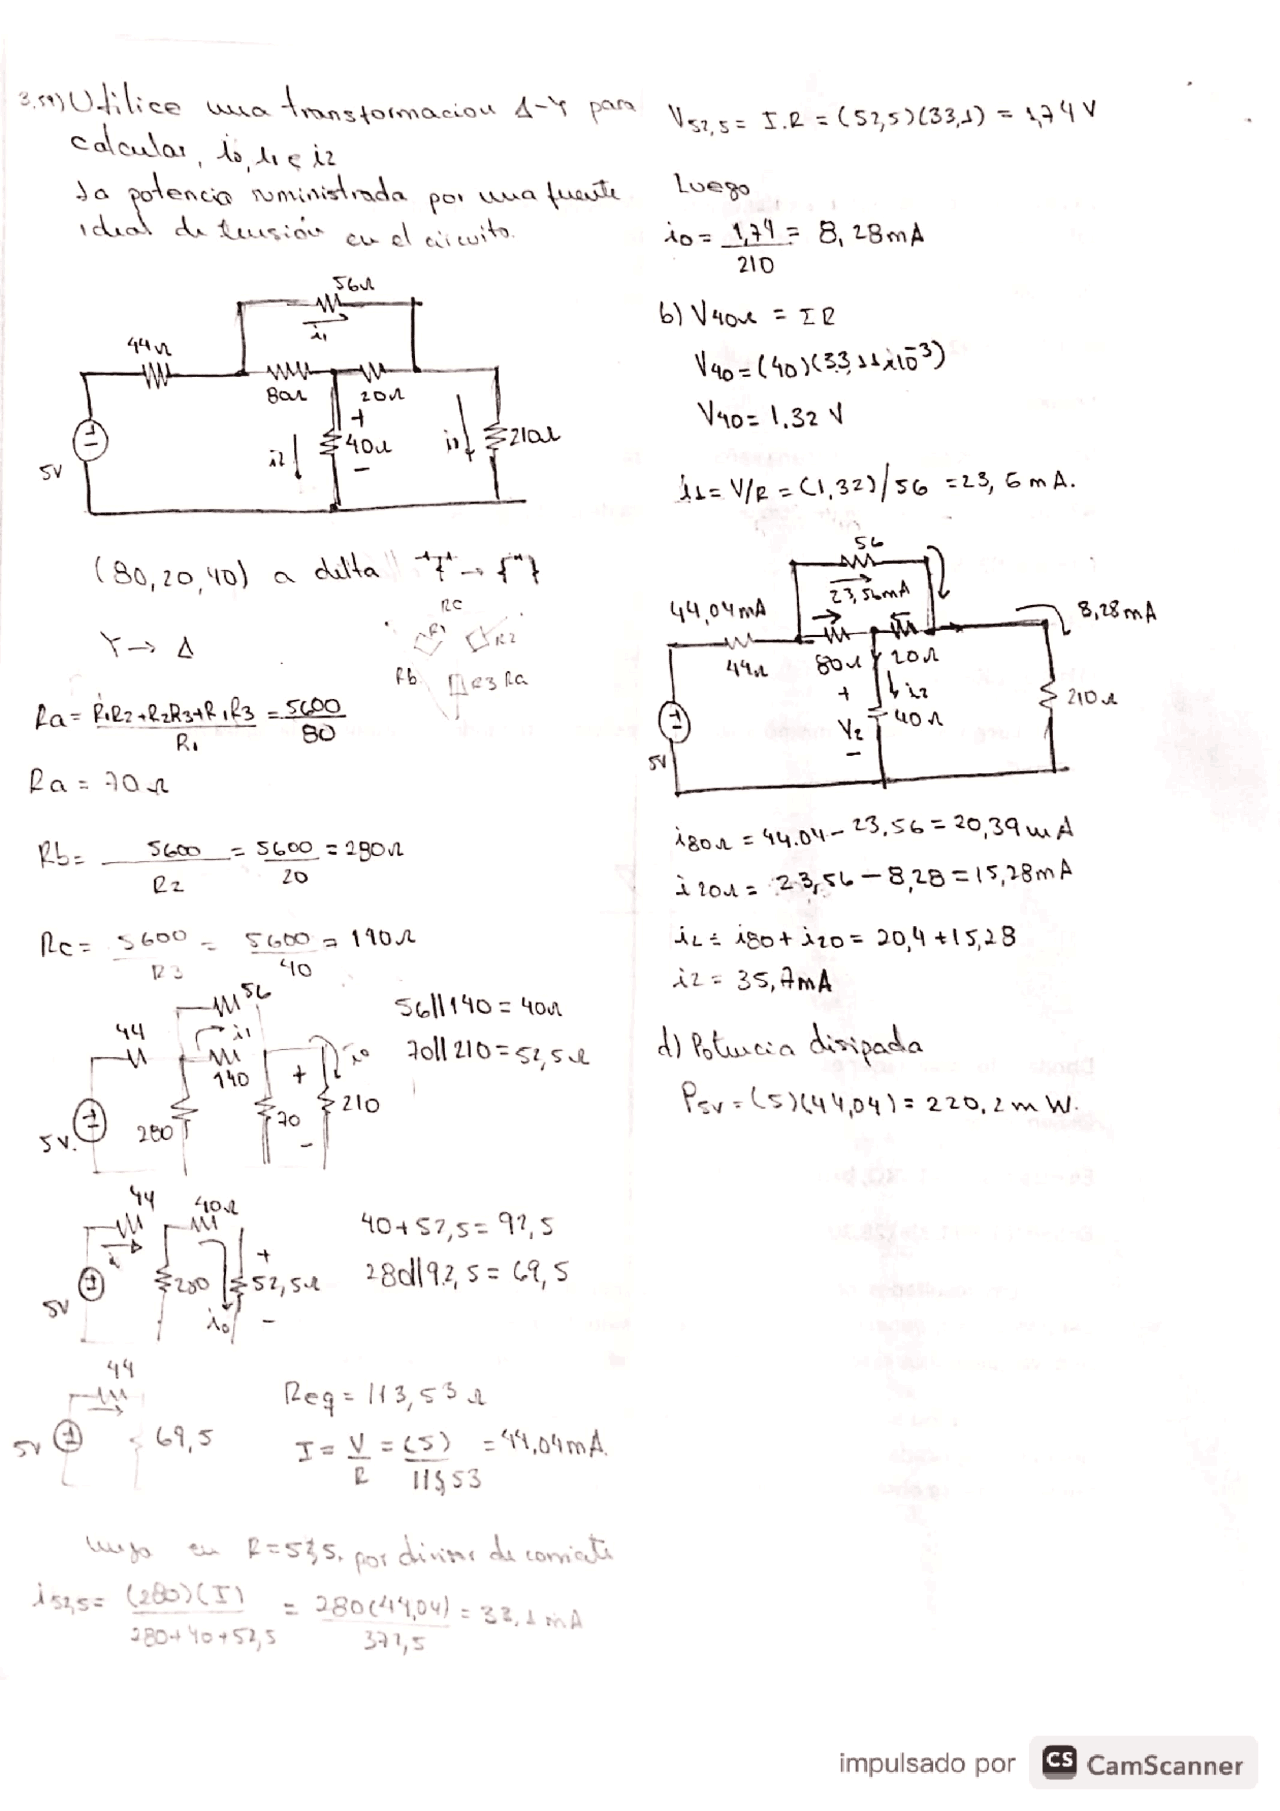 3.59) Utilice una transformacion Δ-Y para
calcular, i0, i1 e i2
la potencia suministrada por una fuente
ideal de tensión en el circuito.
56Ω
i1
44Ω
80Ω 20Ω
+
i2 40Ω i0 210Ω
-
5V
(80, 20, 40) a delta
Y → Δ
RC
R1 R2
Rb R3 Ra
Ra = R1R2+R2R3+R1R3 = 5600
R1 80
Ra = 70Ω
Rb = 5600 = 5600 = 280Ω
R2 20
Rc = 5600 = 5600 = 140Ω
R3 40
56
44 i1
140 + i0
5V. 280 70 210
-
56||140 = 40Ω
70||210 = 52,5Ω
44 40Ω
i +
5V 280 52,5Ω
i0 -
40+52,5 = 92,5
280||92,5 = 69,5
44
5V 69,5
Req = 113,53Ω
I = V = (5) = 44,04mA.
R 113,53
luego en R=52,5, por divisor de corriente
i52,5 = (280)(I) = 280(44,04) = 33,1 mA
280+40+52,5 372,5
V52,5 = I.R = (52,5)(33,1) = 1,74 V
Luego
i0 = 1,74 = 8,28mA
210
b) V40Ω = IR
V40 = (40)(33,11x10^-3)
V40 = 1.32 V
i1 = V/R = (1,32)/56 = 23,6 mA.
56
23,56mA
44,04mA 8,28mA
44Ω 80Ω 20Ω
+ i2 210Ω
V2 40Ω
-
5V
i80Ω = 44.04 - 23,56 = 20,39 mA
i20Ω = 23,56 - 8,28 = 15,28mA
i2 = i80 + i20 = 20,4 + 15,28
i2 = 35,7mA
d) Potencia disipada
P5V = (5)(44,04) = 220,2 m W.
impulsado por CS CamScanner